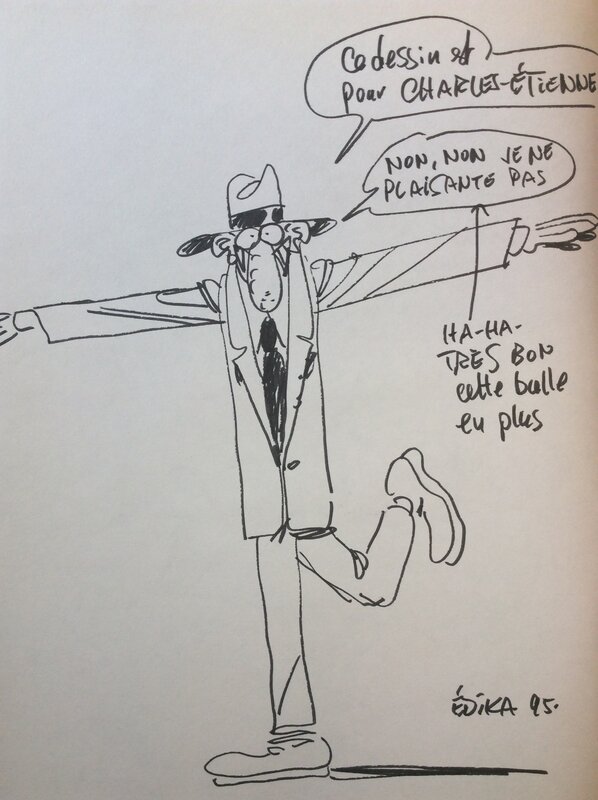 Ce dessin est
pour CHARLES-ÉTIENNE
NON, NON JE NE
PLAISANTE PAS
HA-HA-
TRÈS BON
cette bulle
en plus
ÉDIKA 95.